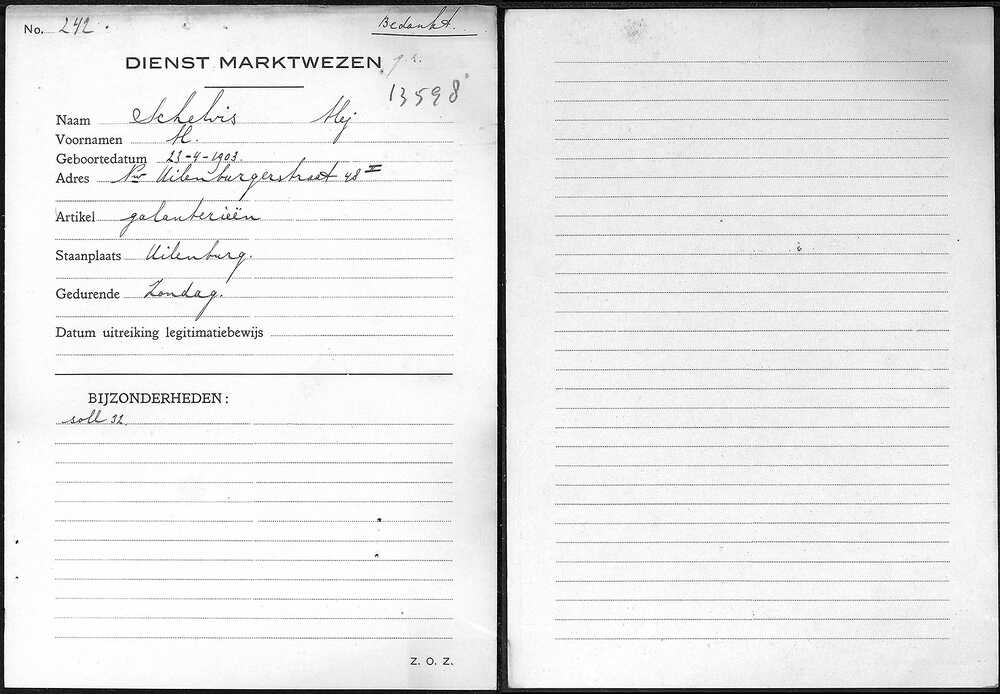 No. 242.
Bedankt.
DIENST MARKTWEZEN
13598
Naam Schelvis Mej
Voornamen M.
Geboortedatum 23-4-1903.
Adres Nw Uilenburgerstraat 48 II
Artikel galanterieën
Staanplaats Uilenburg.
Gedurende Zondag.
Datum uitreiking legitimatiebewijs
BIJZONDERHEDEN:
soll 32.
Z. O. Z.